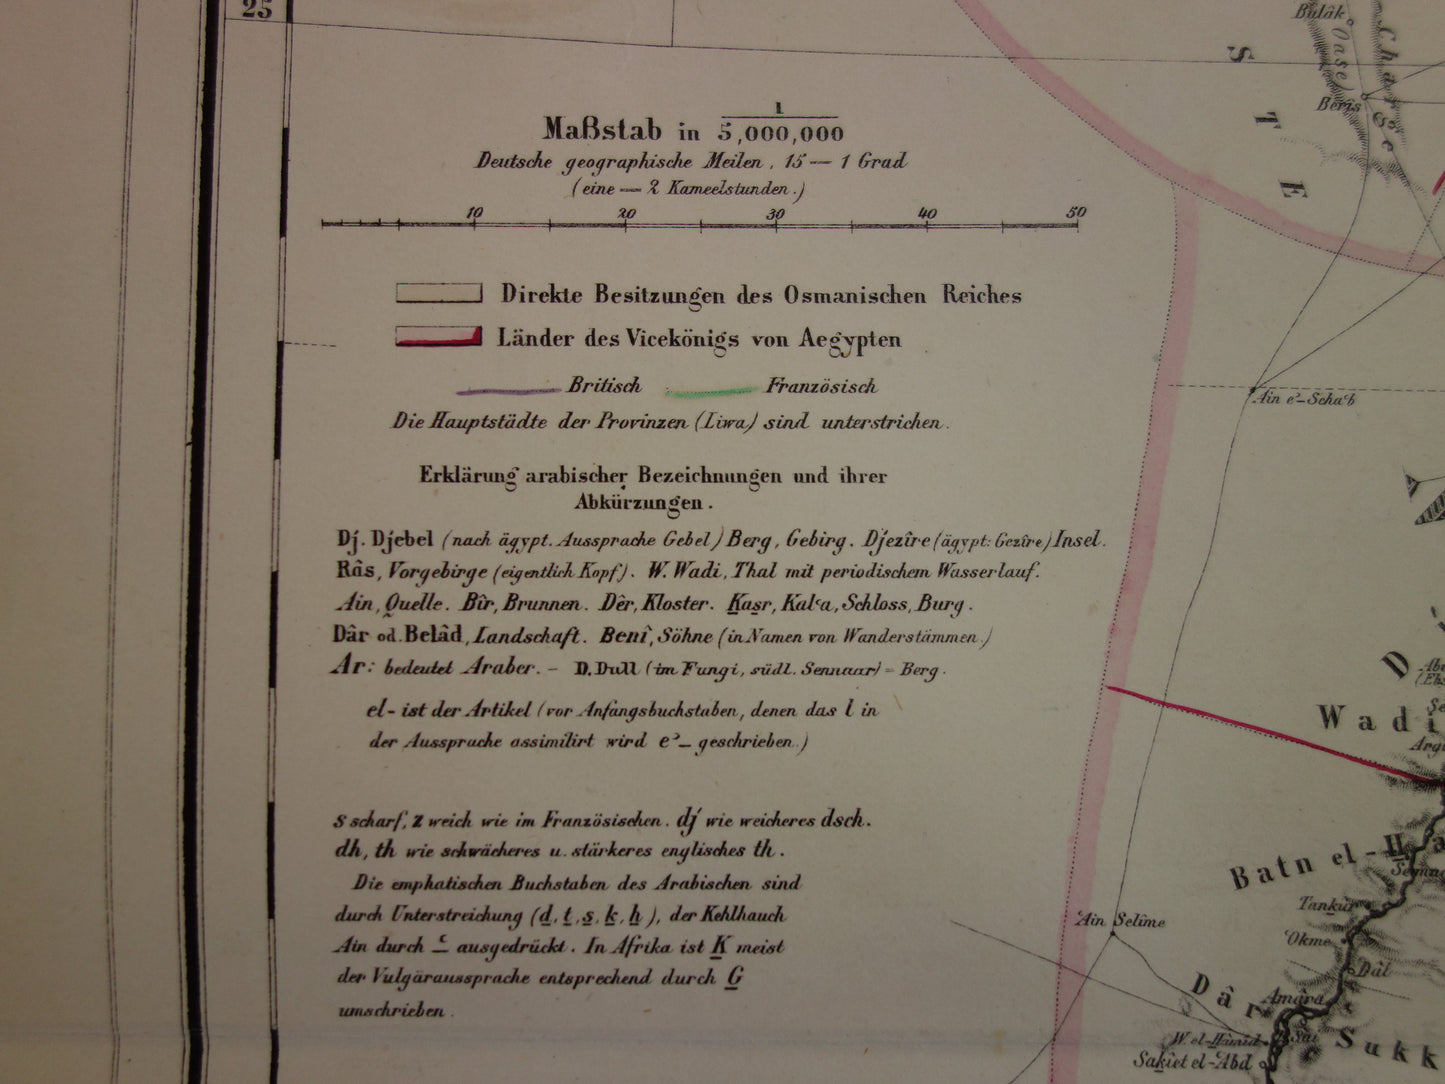 25
Maßstab in 1/5,000,000
Deutsche geographische Meilen, 15 — 1 Grad
(eine — 2 Kameelstunden.)
10 20 30 40 50
Direkte Besitzungen des Osmanischen Reiches
Länder des Vicekönigs von Aegypten
Britisch Französisch
Die Hauptstädte der Provinzen (Liwa) sind unterstrichen.
Erklärung arabischer Bezeichnungen und ihrer
Abkürzungen.
Dj. Djebel (nach ägypt. Aussprache Gebel) Berg, Gebirg. Djezîre (ägypt: Gezîre) Insel.
Râs, Vorgebirge (eigentlich Kopf). W. Wadi, Thal mit periodischem Wasserlauf.
Ain, Quelle. Bîr, Brunnen. Dêr, Kloster. Kasr, Kalʿa, Schloss, Burg.
Dâr od. Belâd, Landschaft. Benî, Söhne (in Namen von Wanderstämmen.)
Ar: bedeutet Araber. – D. Dull (im Fungi, südl. Sennaar) = Berg.
el- ist der Artikel (vor Anfangsbuchstaben, denen das l in
der Aussprache assimilirt wird e'– geschrieben.)
s scharf, z weich wie im Französischen. dj wie weicheres dsch.
dh, th wie schwächeres u. stärkeres englisches th.
Die emphatischen Buchstaben des Arabischen sind
durch Unterstreichung (d, t, s, k, h), der Kehlhauch
Ain durch ʿ ausgedrückt. In Afrika ist K meist
der Vulgäraussprache entsprechend durch G
umschrieben.
Bulâk
Oase
Charge
Bêrîs
S T E
Ain e'-Schaʿb
D
Wadi
Batn el-H
Tankûr
ʿOkme
Dâl
ʿAin Selîme
Dâr
Amâra
Sukk
Sai
W. el-Hâmid
Sakîet el-ʿAbd